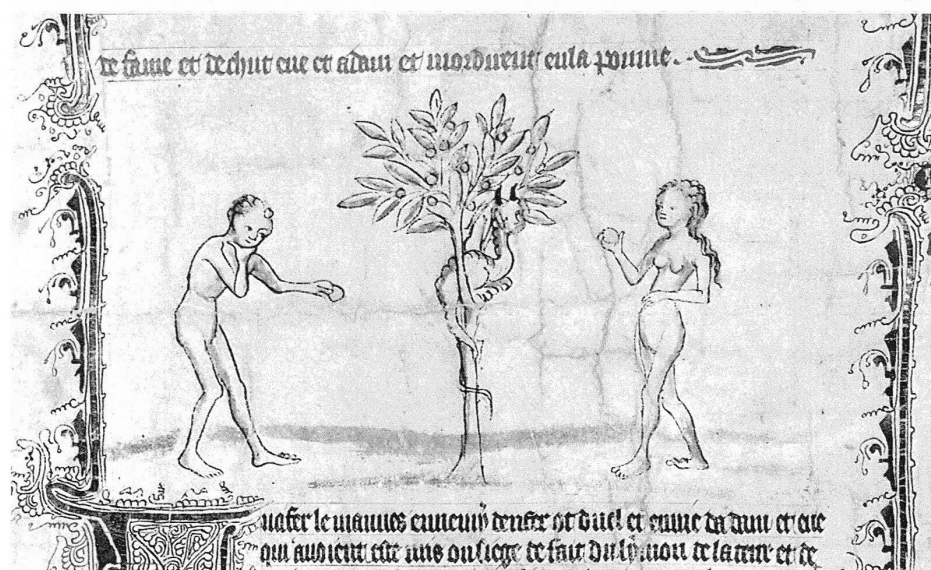 de fame et dechut eue et adam et mordirent en la pomme.
lucifer le mauues ennemy denfer ot duel et enuie dadam et eue
qui auoient este mis ou siege de fait du lymon de la terre et de